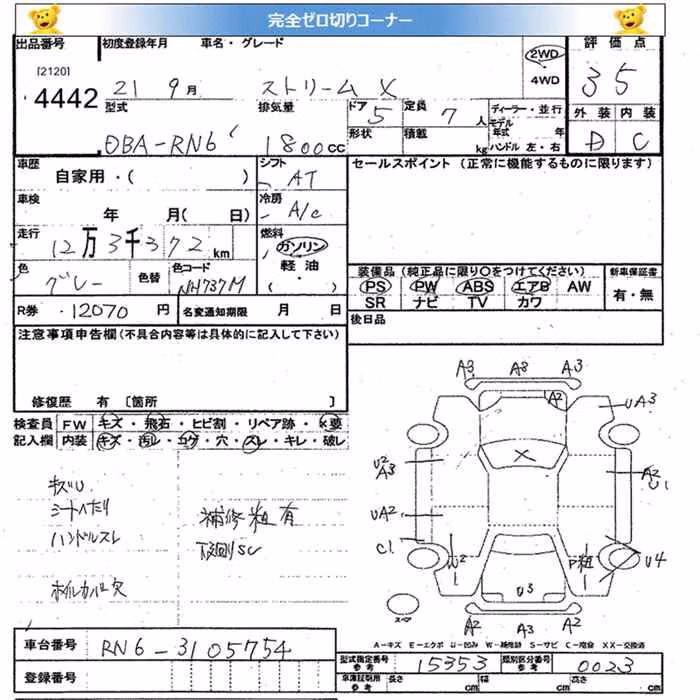 完全ゼロ切りコーナー
出品番号 初度登録年月 車名・グレード 評価点
[2120]
4442
21 9月 ストリーム X
2WD
4WD
35
型式 排気量 ドア 5 定員 7人 ディーラー・並行
モデル年式 年
形状 積載 kg ハンドル 左・右
DBA-RN6 1800cc
外装 内装
D C
車歴 自家用・( ) シフト AT
セールスポイント (正常に機能するものに限ります)
車検 年 月( 日) 冷房 A/C
走行 12万3千372km 燃料 ガソリン
軽油
・( )
色 グレー 色替 色コード NH737M
装備品 (純正品に限り○をつけてください) 新車保証書
PS PW ABS エアB AW
SR ナビ TV カワ
有・無
R券 12070円 名変通知期限 月 日
後日品
注意事項申告欄(不具合内容等は具体的に記入して下さい)
修復歴 有 〔箇所 〕
検査員 FW キズ・飛石・ヒビ割・リペア跡・X要
記入欄 内装 キズ・汚レ・コゲ・穴・スレ・キレ・破レ
キズU
シートヘたり
ハンドルスレ
補修粗有
ホイルカバー欠
A3 A3 A3
A2
UA3
X
U2
A3
A2
U1
UA2
C1
U2
1
P粗
1
U4
U3
A2 A3 A2
スペア
A-キズ E-エクボ U-凹み W-補修跡 S-サビ C-腐食 XX-交換済
車台番号 RN6-3105754
登録番号
型式指定番号 参考 15353 類別区分番号 参考 0023
車庫証明用 参考 長さ cm 幅 cm 高さ cm